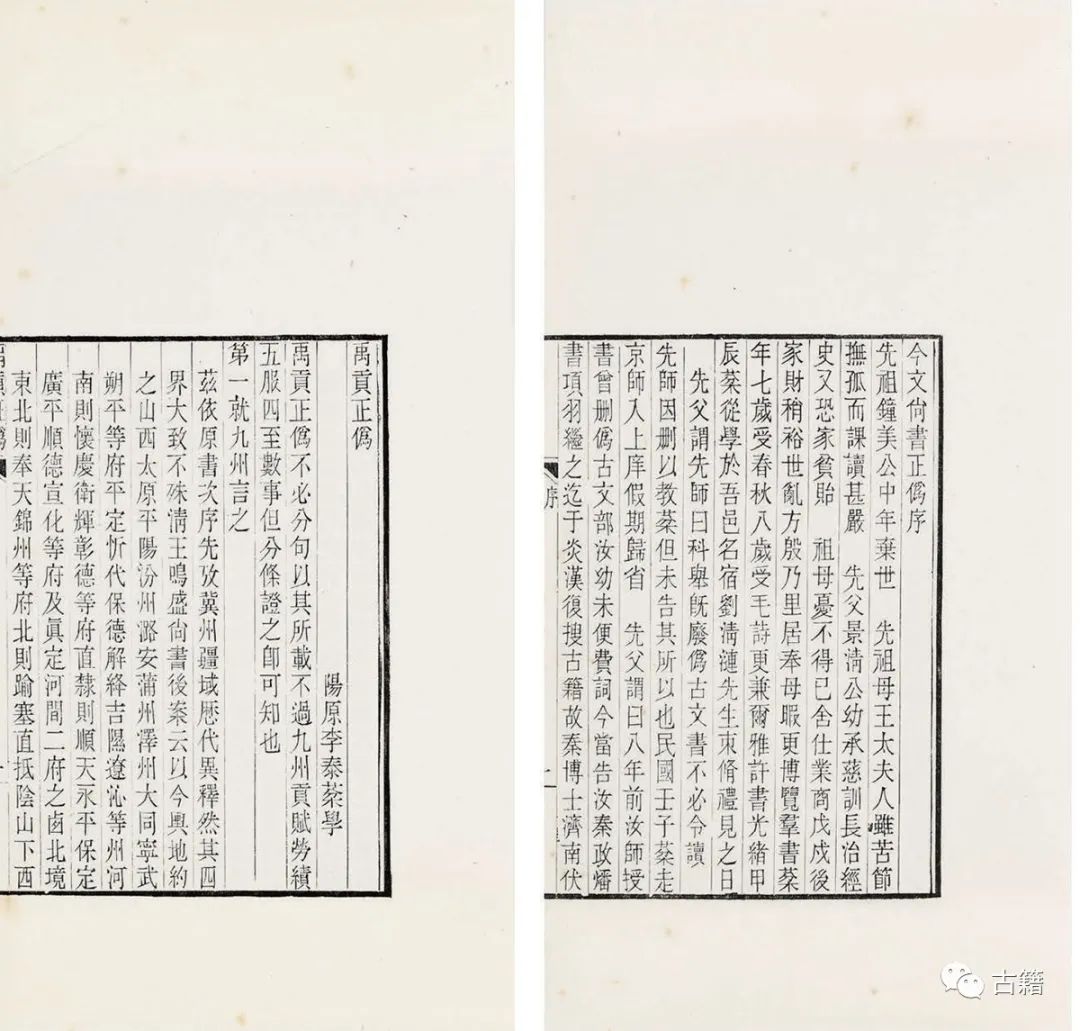 今文尙書正僞序
先祖鐘美公中年棄世　先祖母王太夫人雖苦節
撫孤而課讀甚嚴　先父景淸公幼承慈訓長治經
史又恐家貧貽　祖母憂不得已舍仕業商戊戌後
家財稍裕世亂方殷乃里居奉母暇更博覽羣書棻
年七歲受春秋八歲受毛詩更兼爾雅許書光緖甲
辰棻從學於吾邑名宿劉淸漣先生束脩禮見之日
先父謂先師曰科舉旣廢僞古文書不必令讀
先師因删以教棻但未告其所以也民國壬子棻走
京師入上庠假期歸省　先父謂曰八年前汝師授
書曾删僞古文部汝幼未便費詞今當告汝秦政燔
書項羽繼之迄于炎漢復搜古籍故秦博士濟南伏
序
一
禹貢正僞
陽原李泰棻學
禹貢正僞不必分句以其所載不過九州貢賦勞績
五服四至數事但分條證之卽可知也
第一就九州言之
茲依原書次序先攷冀州疆域歷代異釋然其四
界大致不殊淸王鳴盛尙書後案云以今輿地約
之山西太原平陽汾州潞安蒲州澤州大同寧武
朔平等府平定忻代保德解絳吉隰遼沁等州河
南則懷慶衛輝彰德等府直隸則順天永平保定
廣平順德宣化等府及眞定河間二府之西北境
東北則奉天錦州等府北則踰塞直抵陰山下西
禹貢正僞
一
古籍